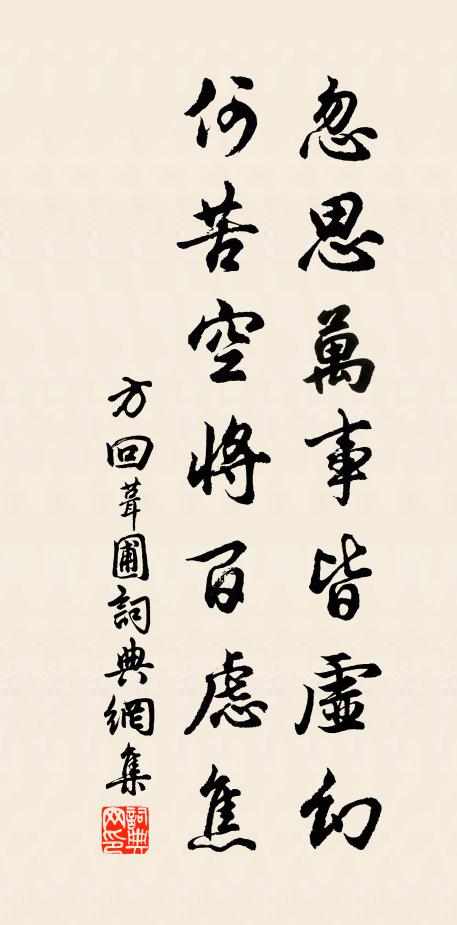 忽思萬事皆虛幻
何苦空將百慮焦
方回葺圃詞典網集
詞典網印